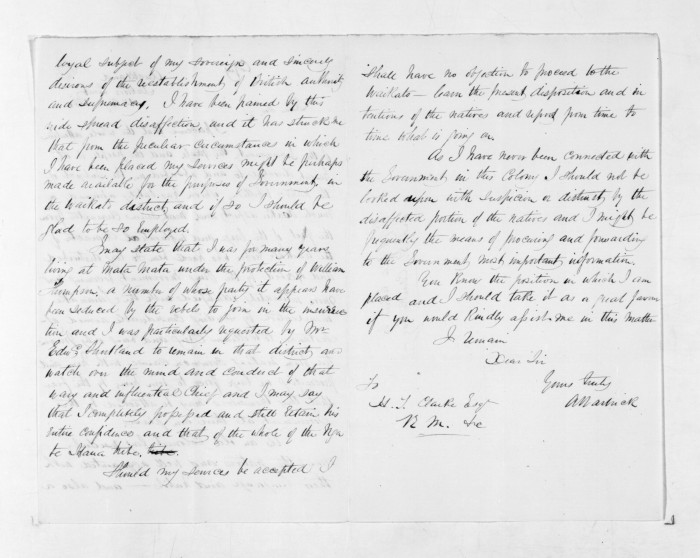 loyal subject of my Sovereign and sincerely
desirous of the reestablishment of British authority
and supremacy. I have been pained by this
wide spread disaffection, and it has struck me
that from the peculiar circumstances in which
I have been placed my services might be perhaps
made available for the purposes of Government, in
the Waikato district, and if so I should be
glad to be so employed.
I may state that I was for many years
living at Mata Mata under the protection of William
Thompson, a number of whose party it appears have
been seduced by the rebels to join in the insurrec
tion and I was particularly requested by Mr
Edwd Shortland to remain in that district and
watch over the mind and conduct of that
wary and influential Chief and I may say
that I completely possessed and still retain his
entire confidence and that of the whole of the Nga
te Haua tribe.
Should my services be accepted I
shall have no objection to proceed to the
Waikato — learn the present disposition and in
tentions of the natives and report from time to
time what is going on.
As I have never been connected with
the Government in this Colony I should not be
looked upon with suspicion or distrust by the
disaffected portion of the natives and I might be
frequently the means of procuring and forwarding
to the Government most important information.
You know the position in which I am
placed and I should take it as a great favour
if you would kindly assist me in this matter
I remain
Dear Sir
Yours truly
A Warbrick
To
H. T. Clarke Esqr
R M.